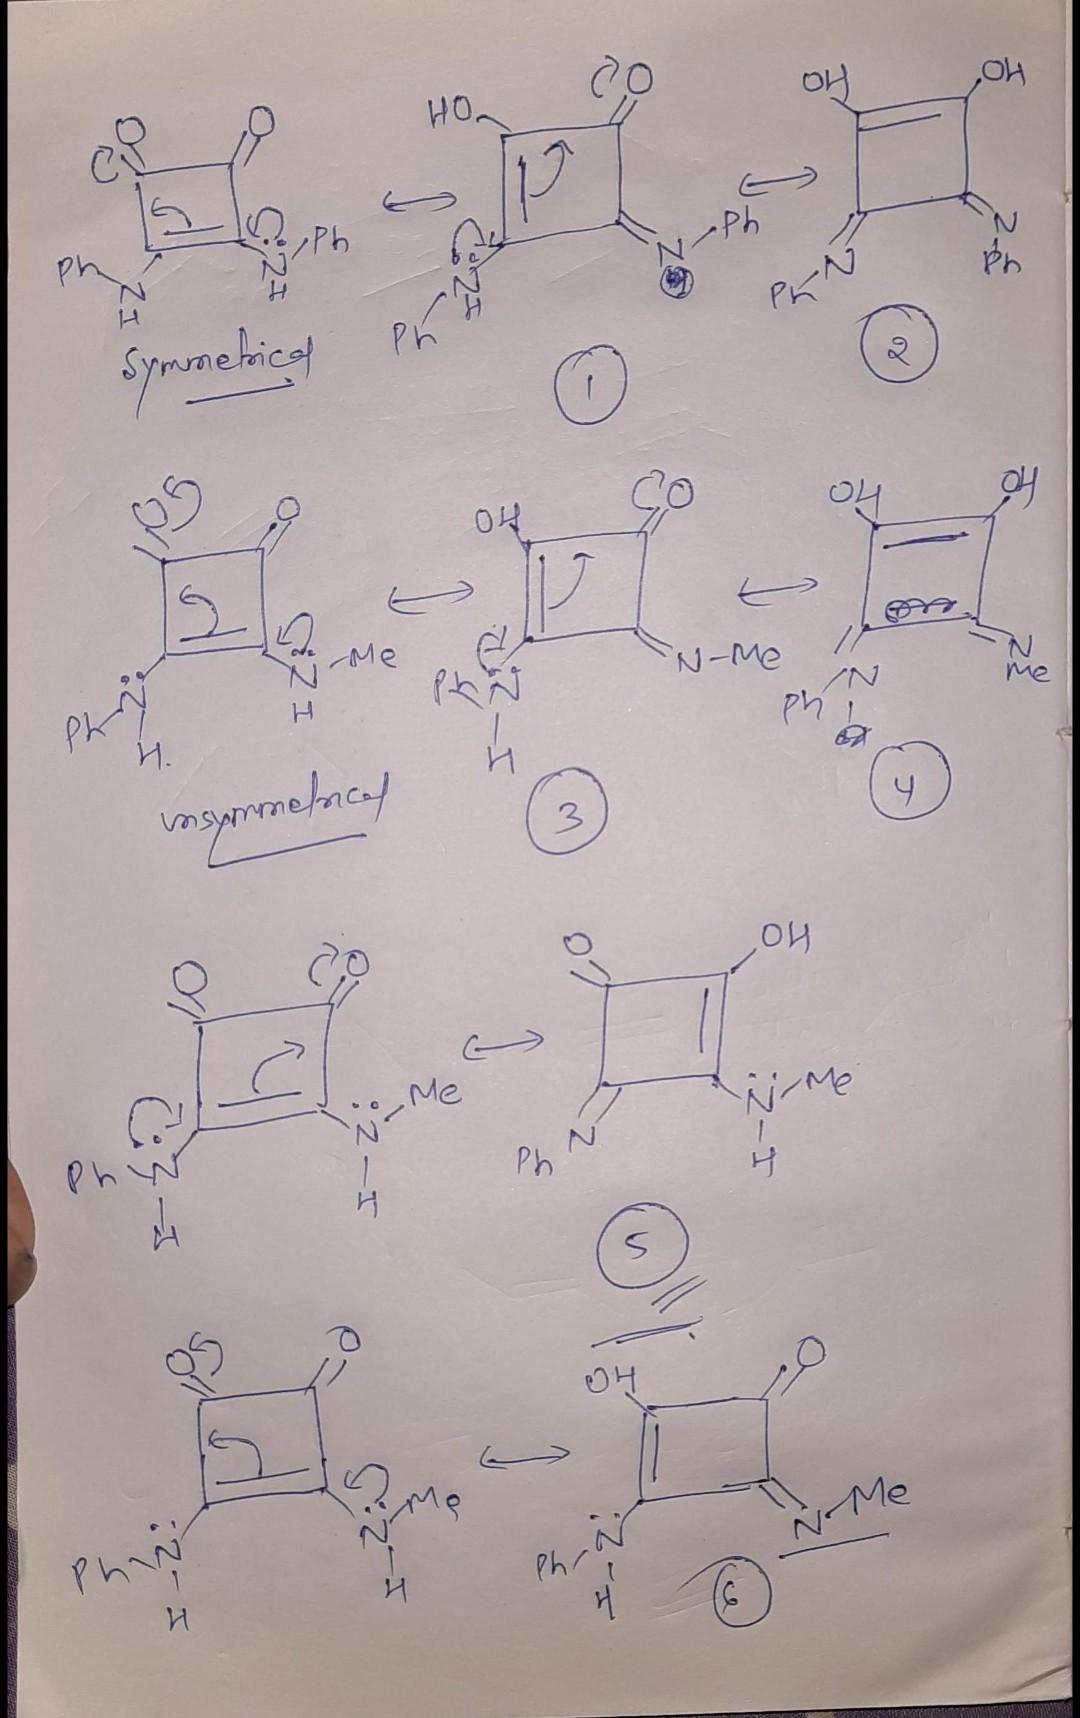 O O HO O OH OH
Ph N H N H Ph Ph N H N Ph Ph N N Ph
Symmetrical
1 2
O O OH O OH OH
Ph N H N H Me Ph N H N-Me Ph N N Me
unsymmetrical
3 4
O O O OH
Ph N H N H Me Ph N N H Me
5
O O OH O
Ph N H N H Me Ph N H N Me
6